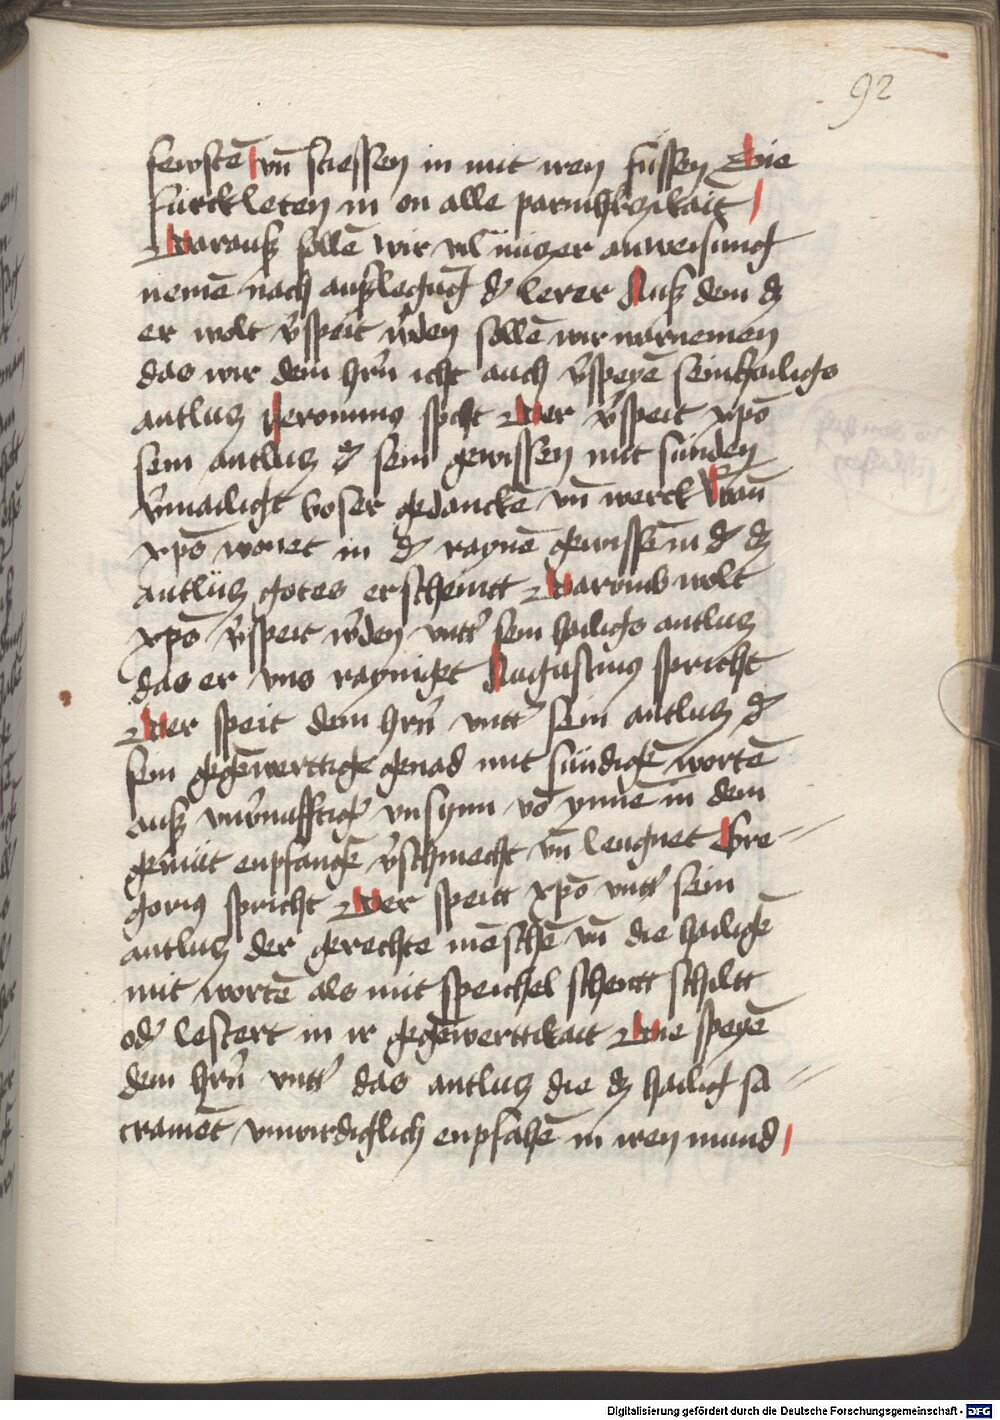 92
fewstē vn̄ stiessen in mit iren fussen Sie
furckleten in on alle parmhrczikait
Warauß sollē wir vil nüczer anweisung
nemē nach außlegūg d' lerer Auß dem dz
er wolt v'speit w'den sollē wir warnemen
das wir dem hr̄n icht auch v'speyē sein heiligs
antlucz Jeronimus spcht Wer v'speit xp̄o
sein antlucz d' sein gewissen mit sunden
v'mailigt boser gedanckē vn̄ werck Wan̄
xp̄o wonet in d' raynē gewissē in d' dz
antlücz gotes erscheintt Warumb wolt
xp̄o v'speit w'den vntt' sein heiligs antlucz
das er vns rayniget Augustinus spricht
Wer speit dem hr̄n vntt' sein antlucz d'
sein gegēwerttige genad mit sündigē wortē
auß vnv'nufftig' vnsynn vō ynnē in dem
gemüt enpfangē v'schmecht vn̄ leugnet Gre=
gorius spricht Wer speitt xp̄o vntt' sein
antlucz der gerechte mēschē vn̄ die heiligē
mit wortē als mit speichel schentt schiltt
od' lestert in ir gegēwerttikait Wie speyē
dem hr̄n vntt' das antlucz die dz heilig sa=
cramēt vnwirdiglich enpfahē in iren mund
Digitalisierung gefördert durch die Deutsche Forschungsgemeinschaft - DFG